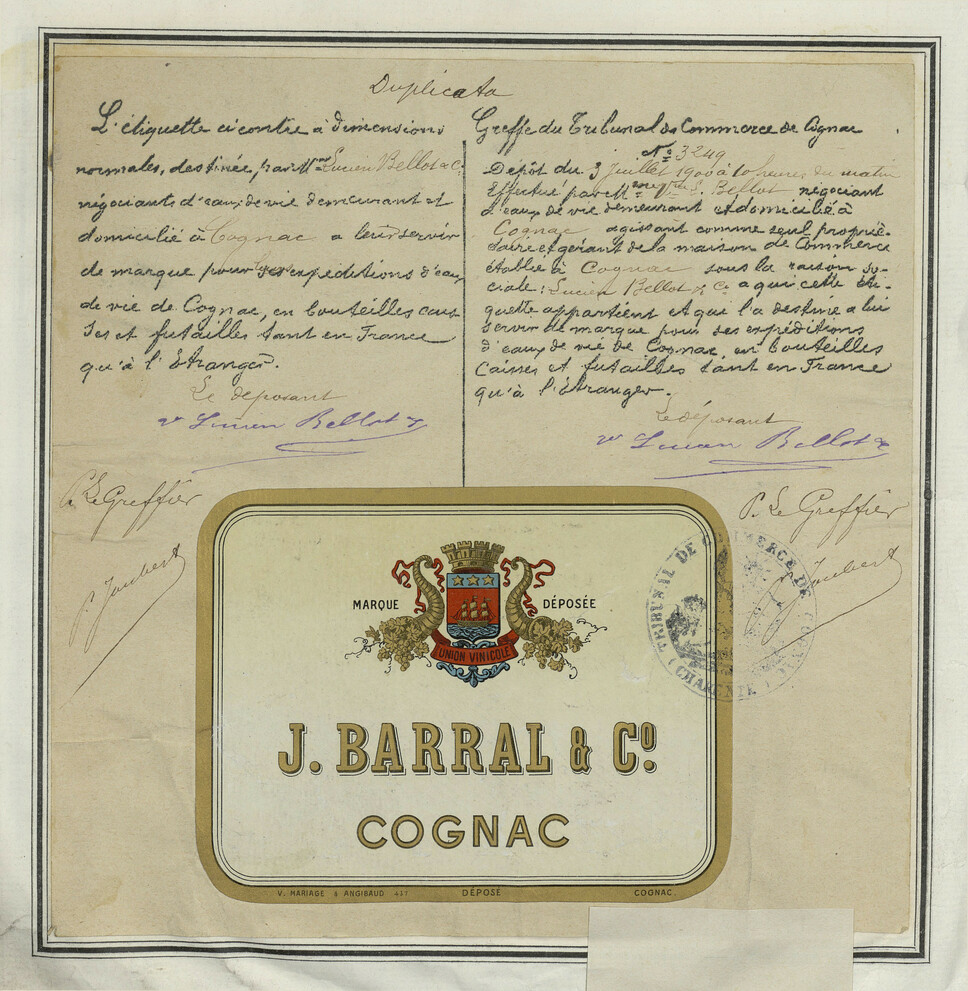 Duplicata
L'étiquette ci contre à dimensions
normales, destinée, par Mme Lucien Bellot & Co
négociants d'eaux de vie demeurant et
domicilié à Cognac a leur servir
de marque pour expéditions d'eaux
de vie de Cognac, en bouteilles cais
ses et futailles tant en France
qu'à l'Etranger.
Le déposant
ve Lucien Bellot
P. Le Greffier
P. Joubert
Greffe du Tribunal de Commerce de Cognac
No 3249
Depôt du 3 Juillet 1900 à 10 heures du matin
Effectué par Bellot négociant
d'eaux de vie demeurant et domicilié à
Cognac agissant comme seul proprié-
taire et gérant de la maison de Commerce
établie à Cognac sous la raison so-
ciale : Lucien Bellot & Co a qui cette éti-
quette appartient et qui l'a destiné a lui
servir de marque pour ses expéditions
d'eaux de vie de Cognac, en bouteilles
Caisses et futailles tant en France
qu'à l'étranger.
Le déposant
ve Lucien Bellot
P. Le Greffier
P. Joubert
TRIBUNAL DE COMMERCE DE COGNAC
(CHARENTE)
MARQUE DÉPOSÉE
UNION VINICOLE
J. BARRAL & Co.
COGNAC
V. MARIAGE & ANGIBAUD DÉPOSÉ COGNAC.